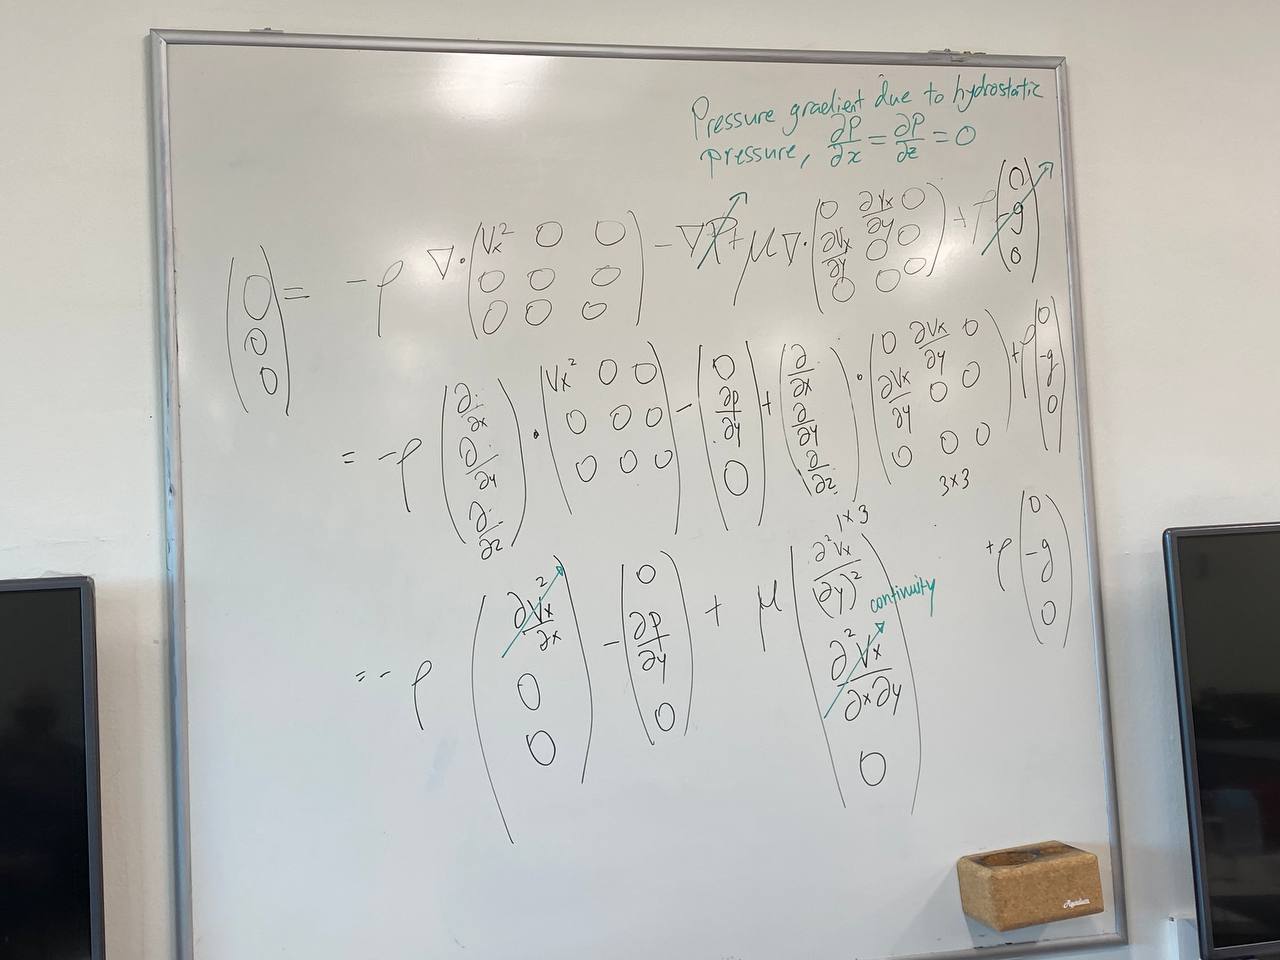 Pressure gradient due to hydrostatic
pressure, ∂P/∂x = ∂P/∂z = 0
(0; 0; 0) = -ρ ∇·(Vx² 0 0; 0 0 0; 0 0 0) - ∇P + μ∇·(0 ∂Vx/∂y 0; ∂Vx/∂y 0 0; 0 0 0) + ρ(0; -g; 0)
= -ρ (∂/∂x; ∂/∂y; ∂/∂z) · (Vx² 0 0; 0 0 0; 0 0 0) - (0; ∂P/∂y; 0) + (∂/∂x; ∂/∂y; ∂/∂z) · (0 ∂Vx/∂y 0; ∂Vx/∂y 0 0; 0 0 0) + ρ(0; -g; 0)
1×3 3×3
= -ρ (∂Vx²/∂x; 0; 0) - (0; ∂P/∂y; 0) + μ (∂²Vx/(∂y)²; ∂²Vx/∂x∂y; 0) + ρ(0; -g; 0)
continuity